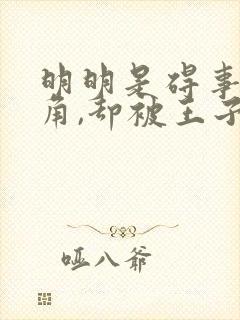 明明是碍事
角,却被王子
哑八爷